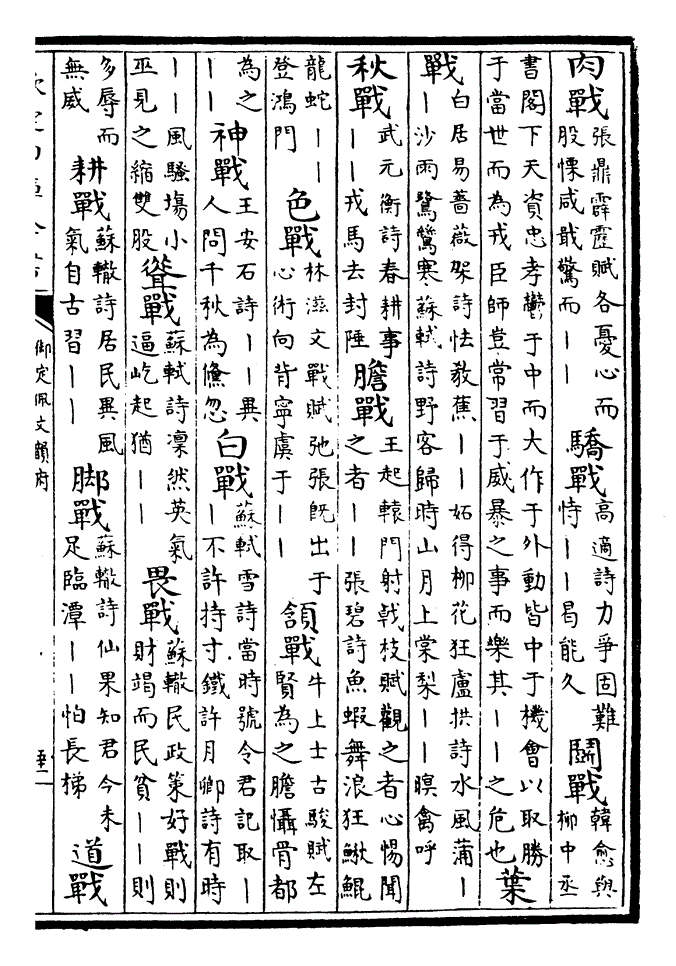 肉戰 張鼎霹靂賦各憂心而股慄咸戢驚而丨丨 驕戰 高適詩力爭固難恃丨丨曷能久 鬭戰 韓愈與柳中丞
書閣下天資忠孝鬱于中而大作于外動皆中于機會以取勝于當世而為戎臣師豈常習于威暴之事而樂其丨丨之危也 葉
戰 白居易薔薇架詩怯教蕉丨丨妬得柳花狂盧拱詩水風蒲丨丨沙雨鷺鷥寒蘇軾詩野客歸時山月上棠梨丨丨暝禽呼
秋戰 武元衡詩春耕事丨丨戎馬去封陲 膽戰 王起轅門射戟枝賦觀之者心惕聞之者丨丨張碧詩魚蝦舞浪狂鰍鯤
龍蛇丨丨登鴻門 色戰 林滋文戰賦弛張既出于心術向背寧虞于丨丨 頷戰 牛上士古駿賦左賢為之膽懾骨都
為之丨丨 神戰 王安石詩丨丨異人間千秋為儵忽 白戰 蘇軾雪詩當時號令君記取丨丨不許持寸鐵許月卿詩有時
丨丨風騷塲小巫見之縮雙股 聳戰 蘇軾詩凛然英氣逼屹起猶丨丨 畏戰 蘇轍民政策好戰則財竭而民貧丨丨則
多辱而無威 耕戰 蘇轍詩居民異風氣自古習丨丨 脚戰 蘇轍詩仙果知君今未足臨潭丨丨怕長梯 道戰
御定佩文韻府